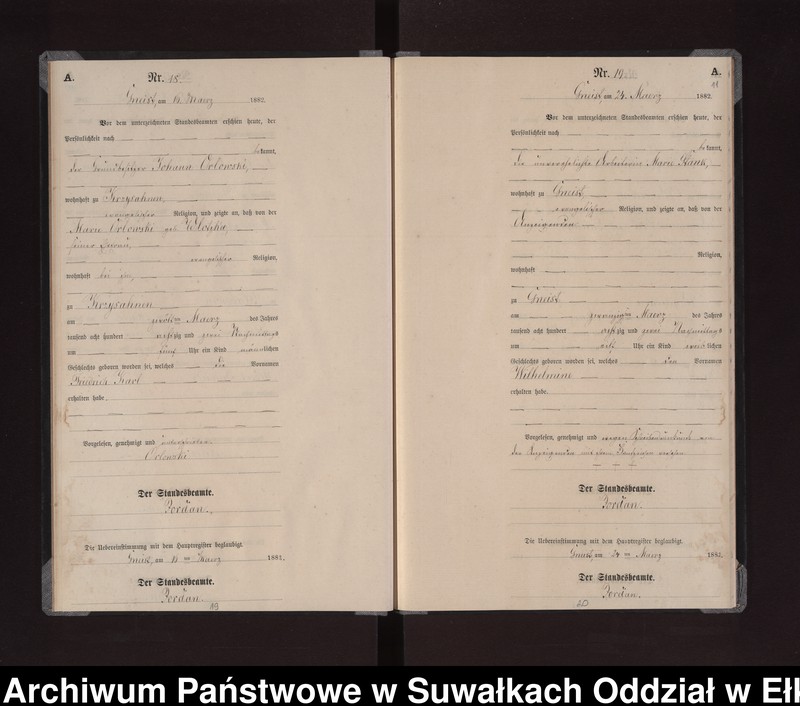 A. Nr. 18
am Maerz 1882.
Vor dem unterzeichneten Standesbeamten erschien heute, der
Persönlichkeit nach
bekannt,
der Grundbesitzer Johann Orlowski,
wohnhaft zu
evangelischer Religion, und zeigte an, daß von der
Marie Orlowski geb.
seiner Ehefrau,
evangelischer Religion,
wohnhaft bei ihm,
zu
am Maerz des Jahres
tausend acht hundert achtzig und zwei Nachmittags
um fünf Uhr ein Kind männlichen
Geschlechts geboren worden sei, welches die Vornamen
Friedrich Karl
erhalten habe.
Vorgelesen, genehmigt und unterschrieben
Orlowski
Der Standesbeamte.
Jordan.
Die Uebereinstimmung mit dem Hauptregister beglaubigt.
am Maerz 1882.
Der Standesbeamte.
Jordan.
19
Nr. 19 A.
11
am 24. Maerz 1882.
Vor dem unterzeichneten Standesbeamten erschien heute, der
Persönlichkeit nach
bekannt,
die unverehelichte Arbeiterin Marie
wohnhaft zu
evangelischer Religion, und zeigte an, daß von der
Anzeigenden
Religion,
wohnhaft
zu
am Maerz des Jahres
tausend acht hundert achtzig und zwei Nachmittags
um elf Uhr ein Kind weiblichen
Geschlechts geboren worden sei, welches den Vornamen
Wilhelmine
erhalten habe.
Vorgelesen, genehmigt und wegen von
der Anzeigenden mit ihrem Handzeichen versehen
Der Standesbeamte.
Jordan.
Die Uebereinstimmung mit dem Hauptregister beglaubigt.
am 24 ten Maerz 1882.
Der Standesbeamte.
Jordan.
20
Archiwum Państwowe w Suwałkach Oddział w Ełk